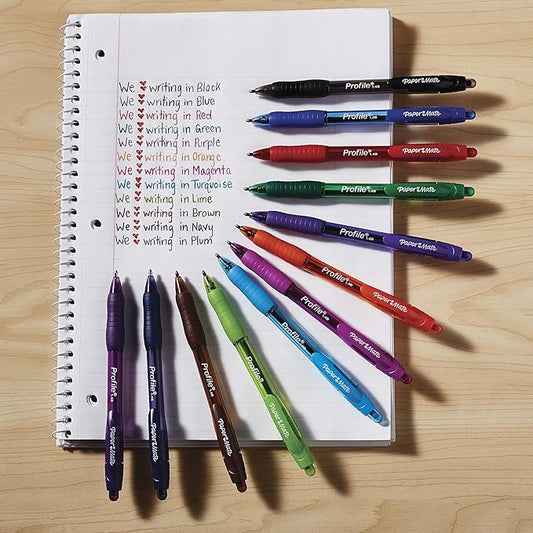 We ♥ writing in Black
We ♥ writing in Blue
We ♥ writing in Red
We ♥ writing in Green
We ♥ writing in Purple
We ♥ writing in Orange
We ♥ writing in Magenta
We ♥ writing in Turquoise
We ♥ writing in Lime
We ♥ writing in Brown
We ♥ writing in Navy
We ♥ writing in Plum
Profile PAPER MATE
Profile PAPER MATE
Profile PAPER MATE
Profile PAPER MATE
Profile PAPER MATE
Profile PAPER MATE
Profile PAPER MATE
Profile PAPER MATE
Profile PAPER MATE
Profile PAPER MATE
Profile PAPER MATE
Profile PAPER MATE